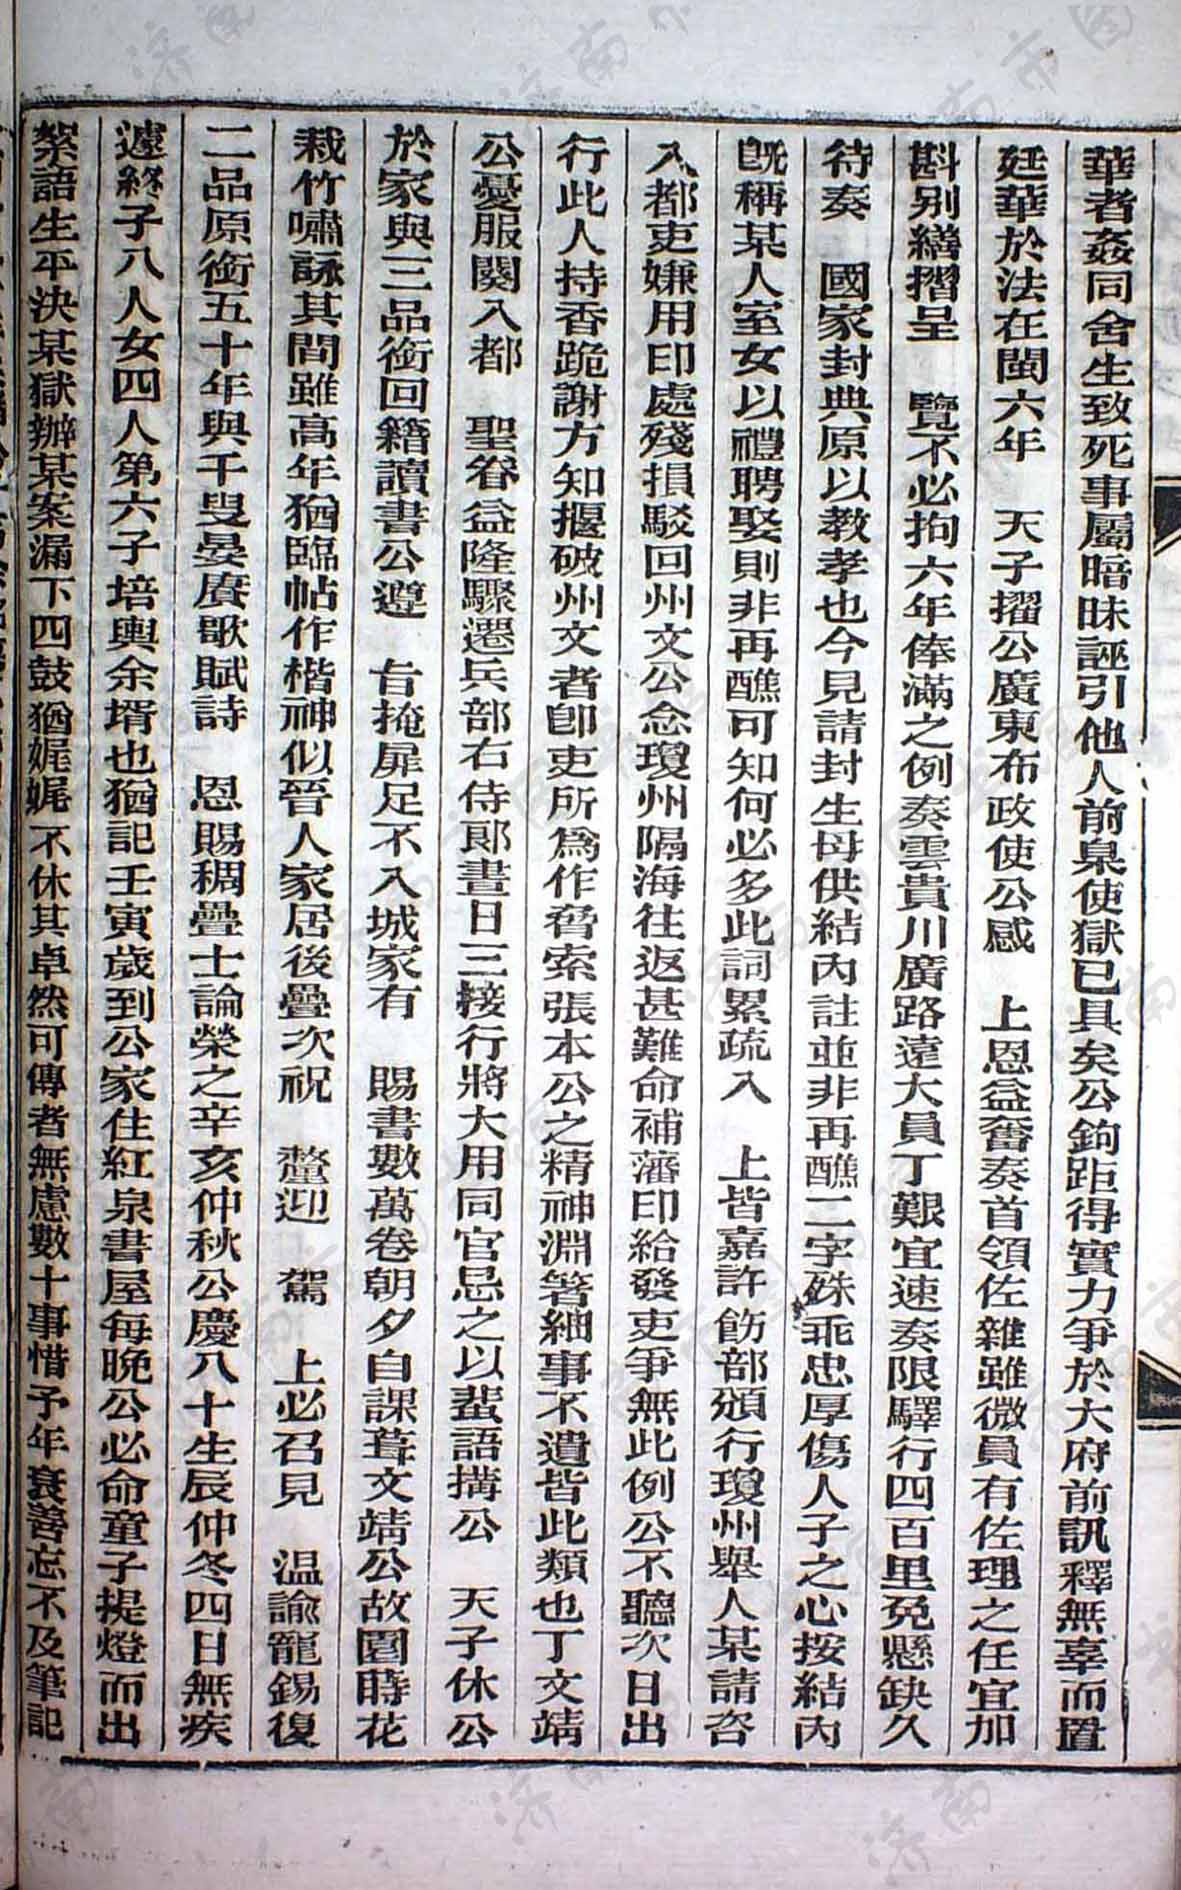 華者姦同舍生致死事屬暗昧誣引他人前臬使獄已具矣公鉤距得實力爭於大府前訊釋無辜而置
廷華於法在閩六年　天子擢公廣東布政使公感　上恩益奮奏首領佐雜雖微員有佐理之任宜加
斟別繕摺呈　覽不必拘六年俸滿之例奏雲貴川廣路遠大員丁艱宜速奏限驛行四百里免懸缺久
待奏　國家封典原以教孝也今見請封生母供結內註並非再醮二字殊乖忠厚傷人子之心按結內
旣稱某人室女以禮聘娶則非再醮可知何必多此詞累疏入　上皆嘉許飭部頒行瓊州舉人某請咨
入都吏嫌用印處殘損駁回州文公念瓊州隔海往返甚難命補藩印給發吏爭無此例公不聽次日出
行此人持香跪謝方知揠破州文者卽吏所爲作脅索張本公之精神淵箸紬事不遺皆此類也丁文靖
公憂服闋入都　聖眷益隆驟遷兵部右侍郞晝日三接行將大用同官忌之以蜚語搆公　天子休公
於家與三品銜回籍讀書公遵　旨掩扉足不入城家有　賜書數萬卷朝夕自課葺文靖公故園蒔花
栽竹嘯詠其間雖高年猶臨帖作楷神似晉人家居後疊次祝　釐迎　駕　上必召見　溫諭寵錫復
二品原銜五十年與千叟晏賡歌賦詩　恩賜稠疊士論榮之辛亥仲秋公慶八十生辰仲冬四日無疾
遽終子八人女四人第六子培輿余壻也猶記壬寅歲到公家住紅泉書屋每晚公必命童子提燈而出
絮語生平決某獄辦某案漏下四鼓猶娓娓不休其卓然可傳者無慮數十事惜予年衰善忘不及筆記